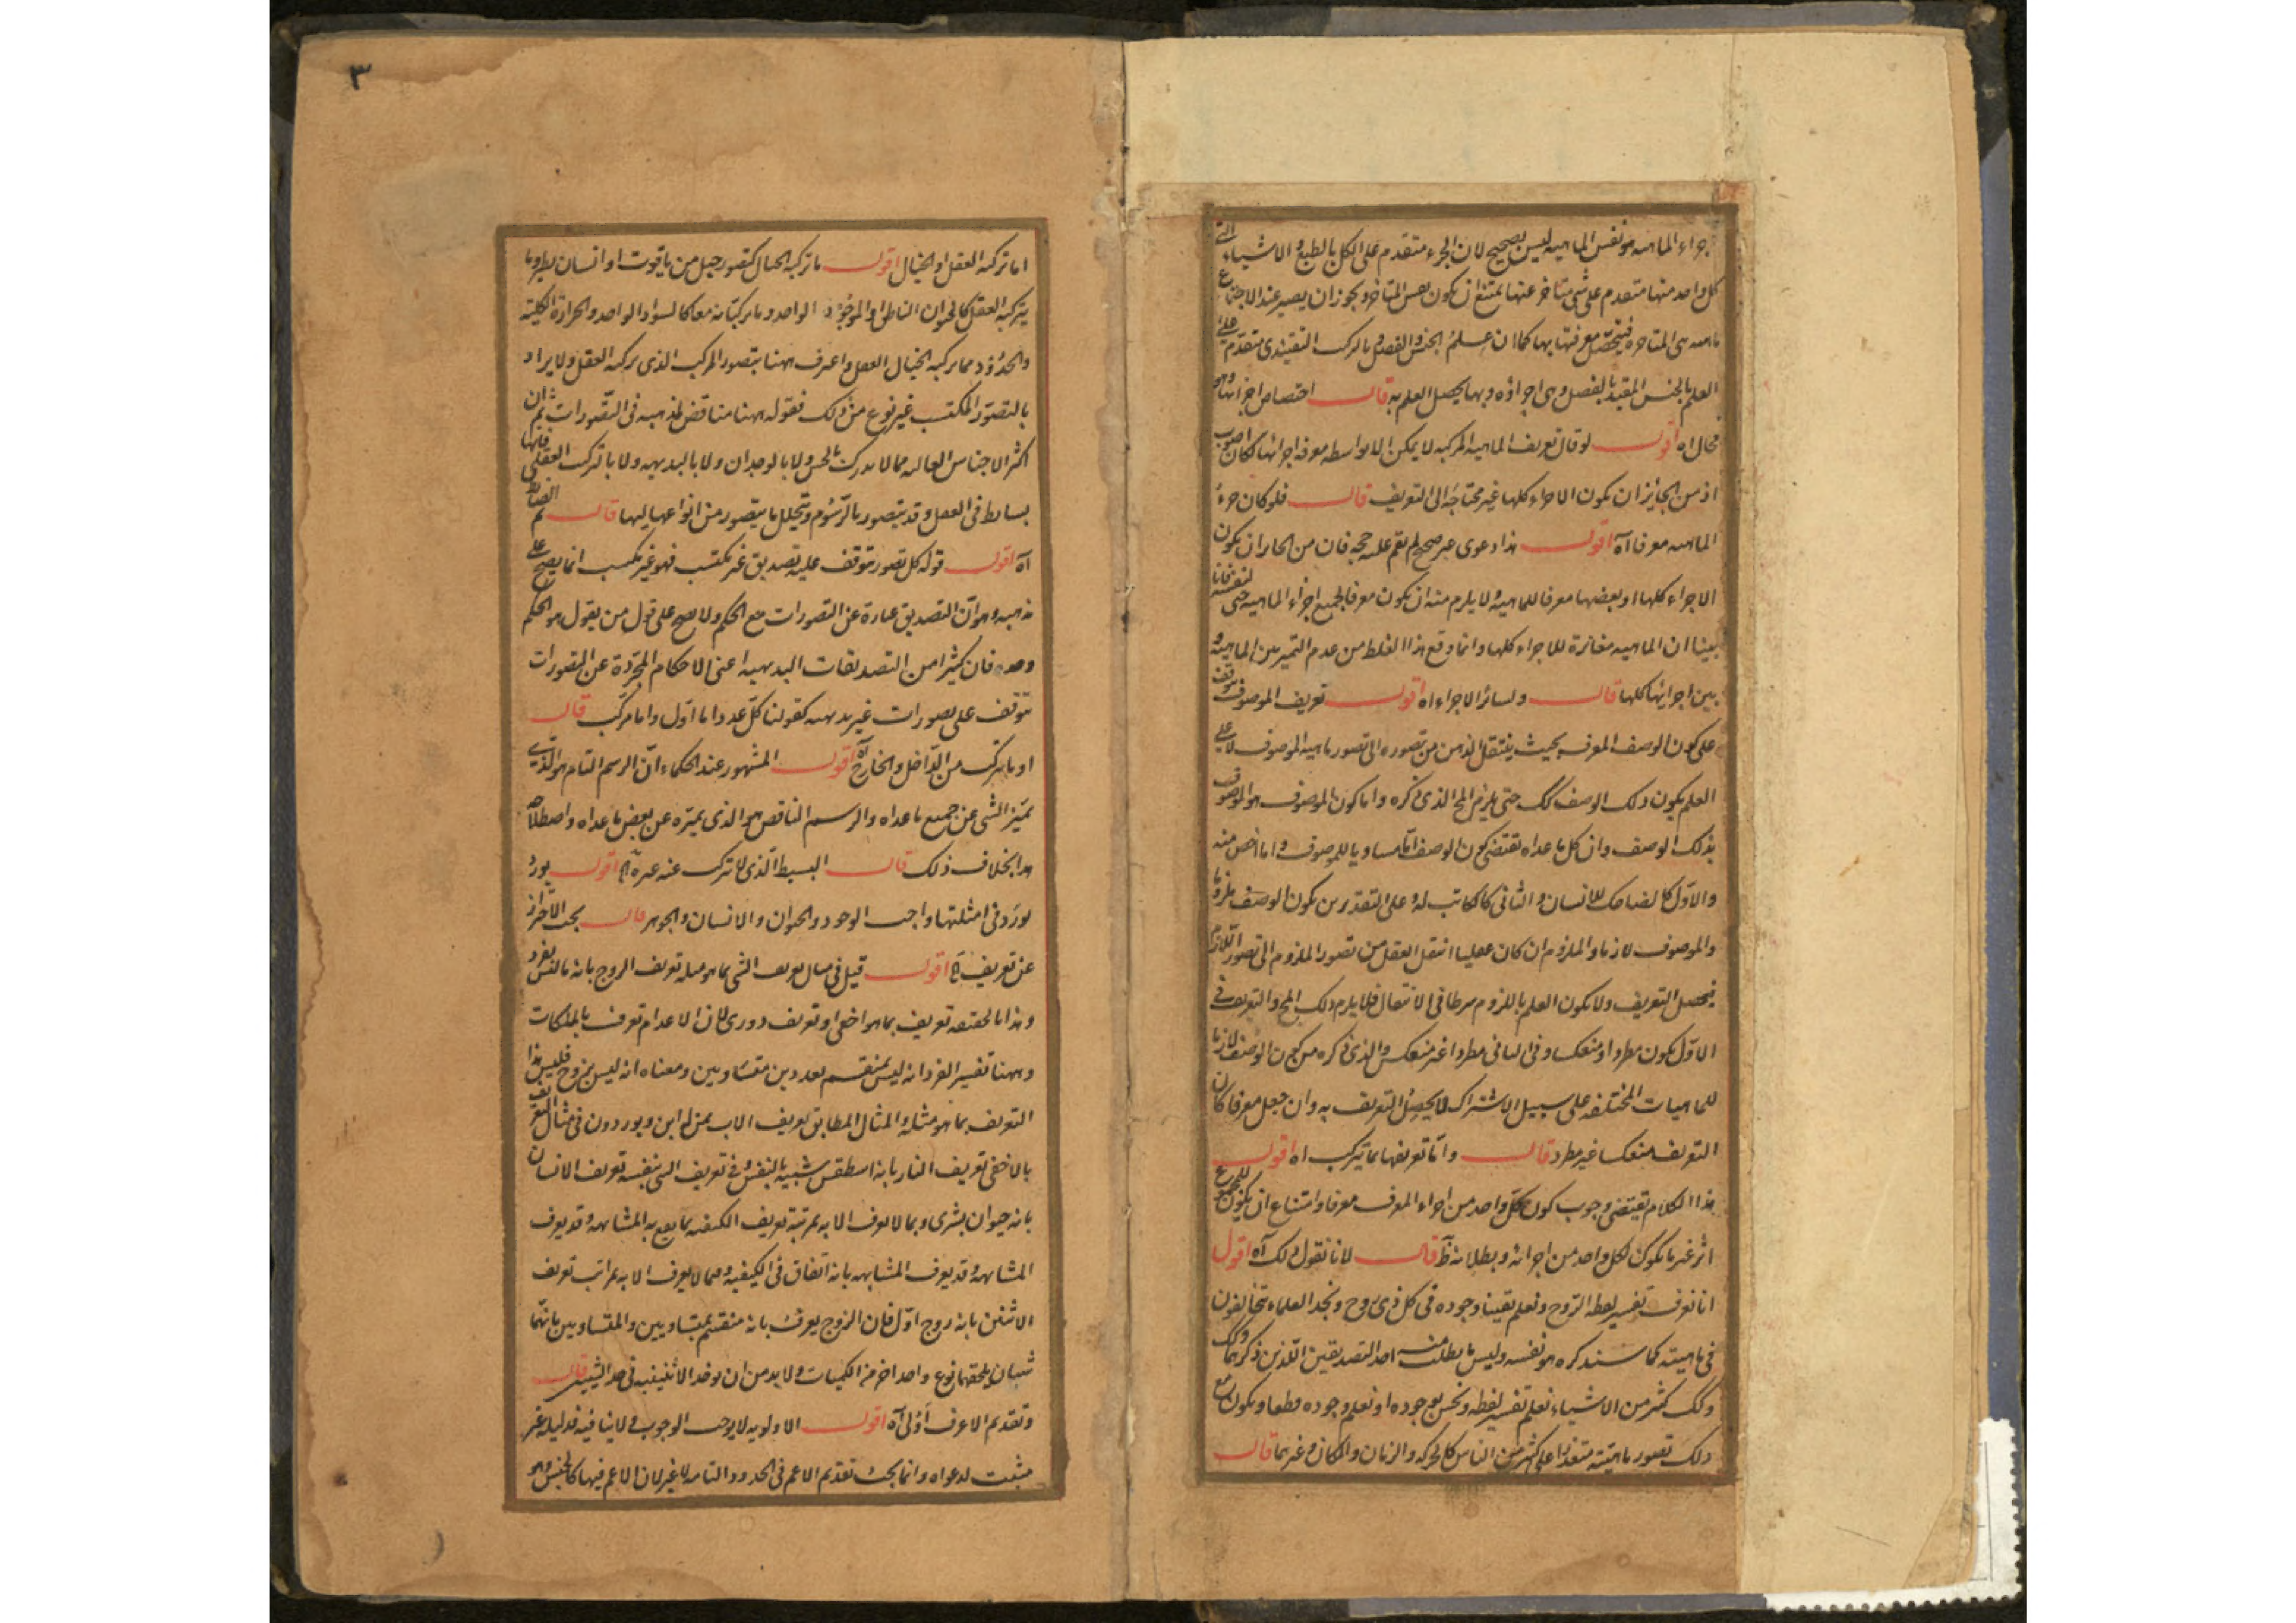 جزاء الماهیه هو نفس الماهیه لیس بصحیح لان الجزء متقدم علی الکل بالطبع و الاشیاء التی
کل واحد منها متقدم علی شئ متاخر عنها یمتنع ان یکون نفس المتاخر و یجوز ان یصیر عند الاجتماع
ماهیه هی المتاخره فیتحصل معرفتها بها کما ان علم الجنس و الفصل و بالرکب التقییدی متقدم علی
العلم بالجنس المقید بالفصل و هی اجزاؤه و بها یحصل العلم به قال اختصاص اجزائها و هو
محال اه اقول لو قال تعریف الماهیه المرکبه لا یمکن الا بواسطه معرفه اجزائها لکان اصوب
اذ من الجائز ان یکون الاجزاء کلها غیر محتاجه الی التعریف قال فلو کان جزء
الماهیه معرفا آه اقول هذا دعوی غیر صحیح لم یقم علیه حجه فان من الجائز ان یکون
الاجزاء کلها او بعضها معرفا للماهیه و لا یلزم منه ان یکون معرفا لجمیع اجزاء الماهیه حتی لنفسه فانا
بینا ان الماهیه مغایرة للاجزاء کلها و انما وقع هذا الغلط من عدم التمییز بین الماهیه و
بین اجزائها کلها قال و لسائر الاجزاء اه اقول تعریف الموصوف یتوقف
علی کون الوصف المعرف بحیث ینتقل الذهن من تصوره الی تصور ماهیه الموصوف لا علی
العلم بکون ذلک الوصف کک حتی یلزم المح الذی ذکره و اما کون الموصوف هو الموصوف
بذلک الوصف دان کل ما عداه تقتضی کون الوصف اما مساویا للموصوف و اما اخص منه
و الاول کالضاحک للانسان و الثانی کالکاتب له و علی التقدیرین یکون الوصف ملزوما
و الموصوف لازما و الملزوم ان کان عقلیا انتقل العقل من تصور الملزوم الی تصور اللازم
فیحصل التعریف و لا یکون العلم باللزوم شرطا فی الانتقال فلا یلزم ذلک المح و التعریف فی
الاول یکون مطردا و منعکسا و فی الثانی مطردا غیر منعکس و الذی ذکره من کون الوصف لازما
للماهیات المختلفه علی سبیل الاشتراک لا یحصل التعریف به و ان جعل معرفا کان
التعریف منعکسا غیر مطرد قال و اما تعریفها بما یترکب اه اقول
هذا الکلام تقتضی وجوب کون کل واحد من اجزاء المعرف معرفا و امتناع ان یکون للمجموع
اثر غیر ما یکون لکل واحد من اجزائه و بطلانه ظ قال لانا نقول ذلک آه اقول
انا نعرف تفسیر لفظه الروح و نعلم یقینا وجوده فی کل ذی روح و نجد العلماء یتخالفون
فی ماهیته کما سنذکره هو نفسه و لیس ما یطلب منه احد التصدیقین اللذین ذکرهما و کک
و کک کثیر من الاشیاء نعلم تفسیر لفظه و نحس بوجوده او نعلم وجوده قطعا و یکون مع
ذلک تصور ماهیته متعذرا علی کثیر من الناس کالحرکه و الزمان و المکان و غیرها قال
٣
اما ترکبه العقل او الخیال اقول ما ترکبه الخیال کتصور جبل من یاقوت او انسان یطیر و ما
یترکبه العقل کالحیوان الناطق او الموجود الواحد و ما یرکبانه معا کالسواد الواحد و الحرارة الکلیة
و الحدود مما یرکبه الخیال العقل و اعرف ههنا بتصور المرکب الذی یرکبه العقل و لا یراد
بالتصور المکتسب غیر نوع من ذلک فقوله ههنا مناقض لمذهبه فی التصورات ثم ان
اکثر الاجناس العالیه مما لا یدرک بالحس و لا بالوجدان و لا بالبدیهه و لا بالترکب العقلی فانها
بسائط فی العقل و قد یتصور بالرسوم و بتحلیل ما یتصور من انواعها الیها قال ثم الضابط
آه اقول قوله کل تصور یتوقف علیه تصدیق غیر مکتسب فهو غیر مکتسب انما یصح علی
مذهبه و هو ان التصدیق عبارة عن التصورات مع الحکم و لا یصح علی قول من یقول هو الحکم
وحده فان کثیرا من التصدیقات البدیهیه اعنی الاحکام المجردة عن التصورات
تتوقف علی تصورات غیر بدیهیه کقولنا کل عدد اما اول و اما مرکب قال
او ما یترکب من الداخل و الخارج آه اقول المشهور عند الحکماء ان الرسم التام هو الذی
یمیز الشئ عن جمیع ما عداه و الرسم الناقص هو الذی یمیزه عن بعض ما عداه و اصطلاحه
هذا بخلاف ذلک قال البسیط الذی لا ترکب عنه غیره آه اقول یورد
یورد فی امثلتها واجب الوجود و الحیوان و الانسان و الجوهر قال یجب الاحتراز
عن تعریف آه اقول قیل فی مثال تعریف الشئ بما هو مثله تعریف الزوج بانه ما لیس بفرد
و هذا بالحقیقه تعریف بما هو اخفی او تعریف دوری لان الاعدام تعرف بالملکات
و ههنا تفسیر الفرد انه لیس بمنقسم بعددین متساویین و معناه انه لیس بزوج فلیس هذا
التعریف بما هو مثله و المثال المطابق تعریف الاب بمن له ابن و یوردون فی مثال التعریف
بالاخفی تعریف النار بانه اسطقس شبیه بالنفس و فی تعریف الشئ بنفسه تعریف الانسان
بانه حیوان بشری و بما لا یعرف الا به بمرتبة تعریف الکیفیه بما یقع به المشابهه و قد یعرف
المشابهه و قد یعرف المشابهه بانه اتفاق فی الکیفیه و بما لا یعرف الا به بمراتب تعریف
الاثنین بانه زوج اول فان الزوج یعرف بانه منقسم بمتساویین و المتساویین بانهما
شیئان یلحقهما نوع واحد اخر من الکمیات و لا بد من ان یوخذ الاثنینیه فی حد الشیئین قال
و تقدیم الاعرف اولی آه اقول الاولویه لا یوجب الوجوب و لا ینافیه فدلیله غیر
مثبت لدعواه و انما یجب تقدیم الاعم فی الحدود التامه لا غیر لان الاعم فیها کالجنس و هو